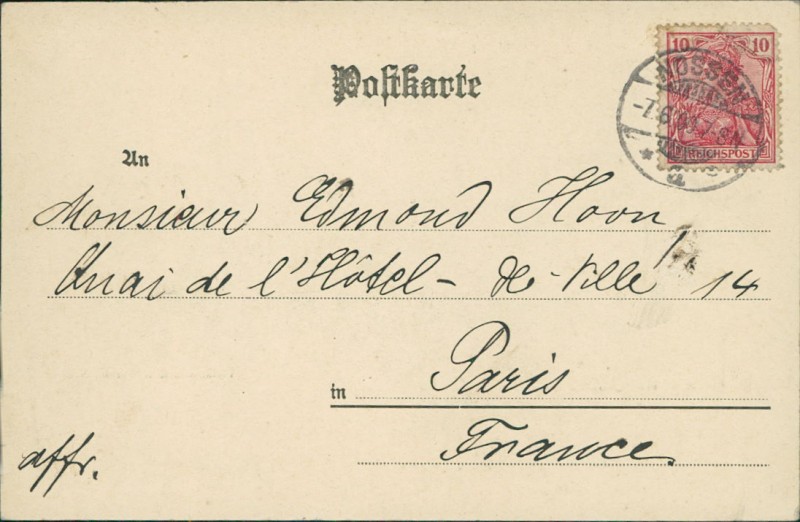 Postkarte
10 10
NOSSEN
REICHSPOST
An
Monsieur Edmond Hoon
Quai de l'Hôtel-de-Ville 14
in Paris
France.
affr.